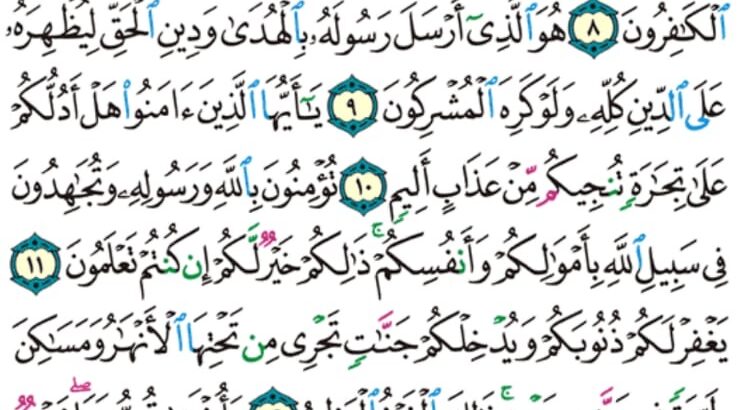 ٱلْكَٰفِرُونَ ٨ هُوَ ٱلَّذِىٓ أَرْسَلَ رَسُولَهُۥ بِٱلْهُدَىٰ وَدِينِ ٱلْحَقِّ لِيُظْهِرَهُۥ
عَلَى ٱلدِّينِ كُلِّهِۦ وَلَوْ كَرِهَ ٱلْمُشْرِكُونَ ٩ يَٰٓأَيُّهَا ٱلَّذِينَ ءَامَنُوا۟ هَلْ أَدُلُّكُمْ
عَلَىٰ تِجَٰرَةٍ تُنجِيكُم مِّنْ عَذَابٍ أَلِيمٍ ١٠ تُؤْمِنُونَ بِٱللَّهِ وَرَسُولِهِۦ وَتُجَٰهِدُونَ
فِى سَبِيلِ ٱللَّهِ بِأَمْوَٰلِكُمْ وَأَنفُسِكُمْ ۚ ذَٰلِكُمْ خَيْرٌ لَّكُمْ إِن كُنتُمْ تَعْلَمُونَ ١١
يَغْفِرْ لَكُمْ ذُنُوبَكُمْ وَيُدْخِلْكُمْ جَنَّٰتٍ تَجْرِى مِن تَحْتِهَا ٱلْأَنْهَٰرُ وَمَسَٰكِنَ